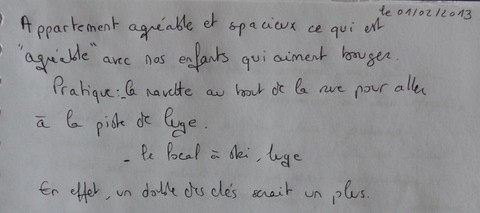 le 01/02/2013
Appartement agréable et spacieux ce qui est
"agréable" avec nos enfants qui aiment bouger.
Pratique : - la navette au bout de la rue pour aller
à la piste de luge.
- le local à ski, luge
En effet, un double des clés serait un plus.